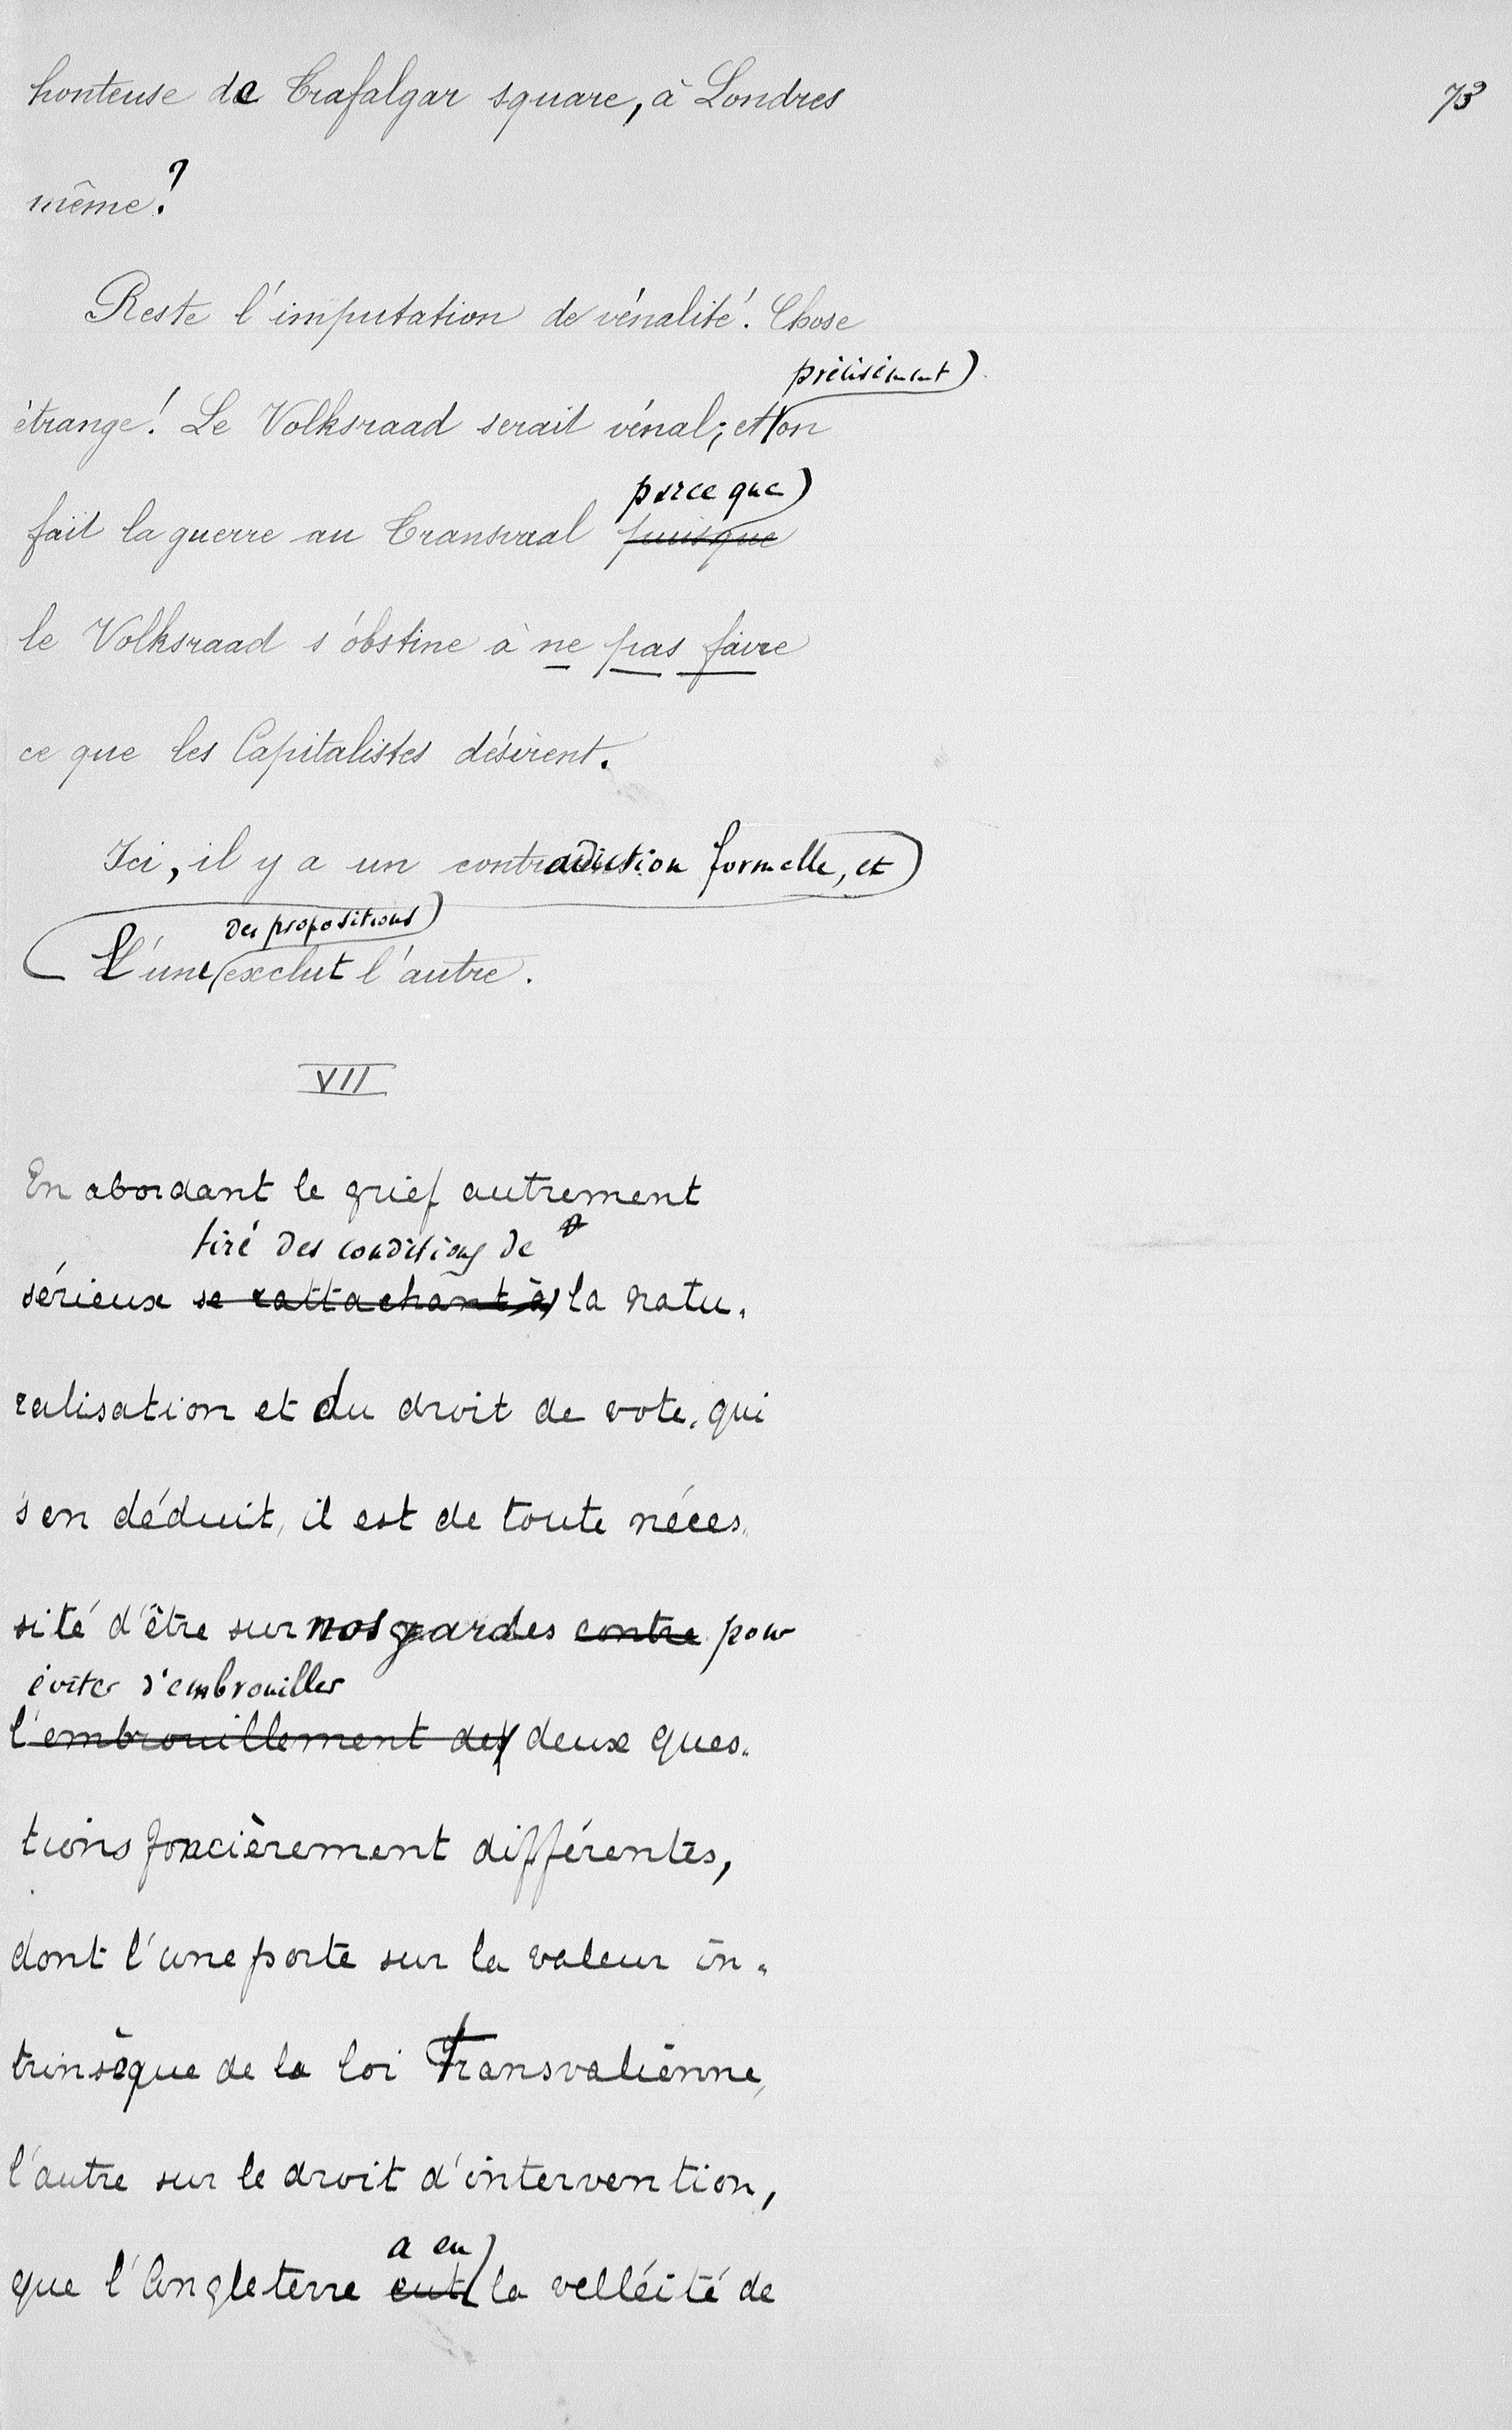 honteuse de Trafalgar square, à Londres
73
même?
Reste l'imputation de vénalité. Chose
précisément
étrange! Le Volksraad serait vénal; et on
parce que
fait la guerre au Transvaal puisque
le Volksraad s'obstine à ne pas faire
ce que les Capitalistes désirent.
Ici, il y a un contradiction formelle, et
des propositions
l'une exclut l'autre.
VII
En abordant le grief autrement
tiré des conditions de
sérieux se rattachant à la natu-
ralisation et du droit de vote, qui
s'en déduit, il est de toute néces-
sité d'être sur nos gardes contre pour
éviter d'embrouiller
l'embrouillement des deux ques-
tions foncièrement différentes,
dont l'une porte sur la valeur in-
trinsèque de la loi Transvalienne,
l'autre sur le droit d'intervention,
a eu
que l'Angleterre eut la velléité de